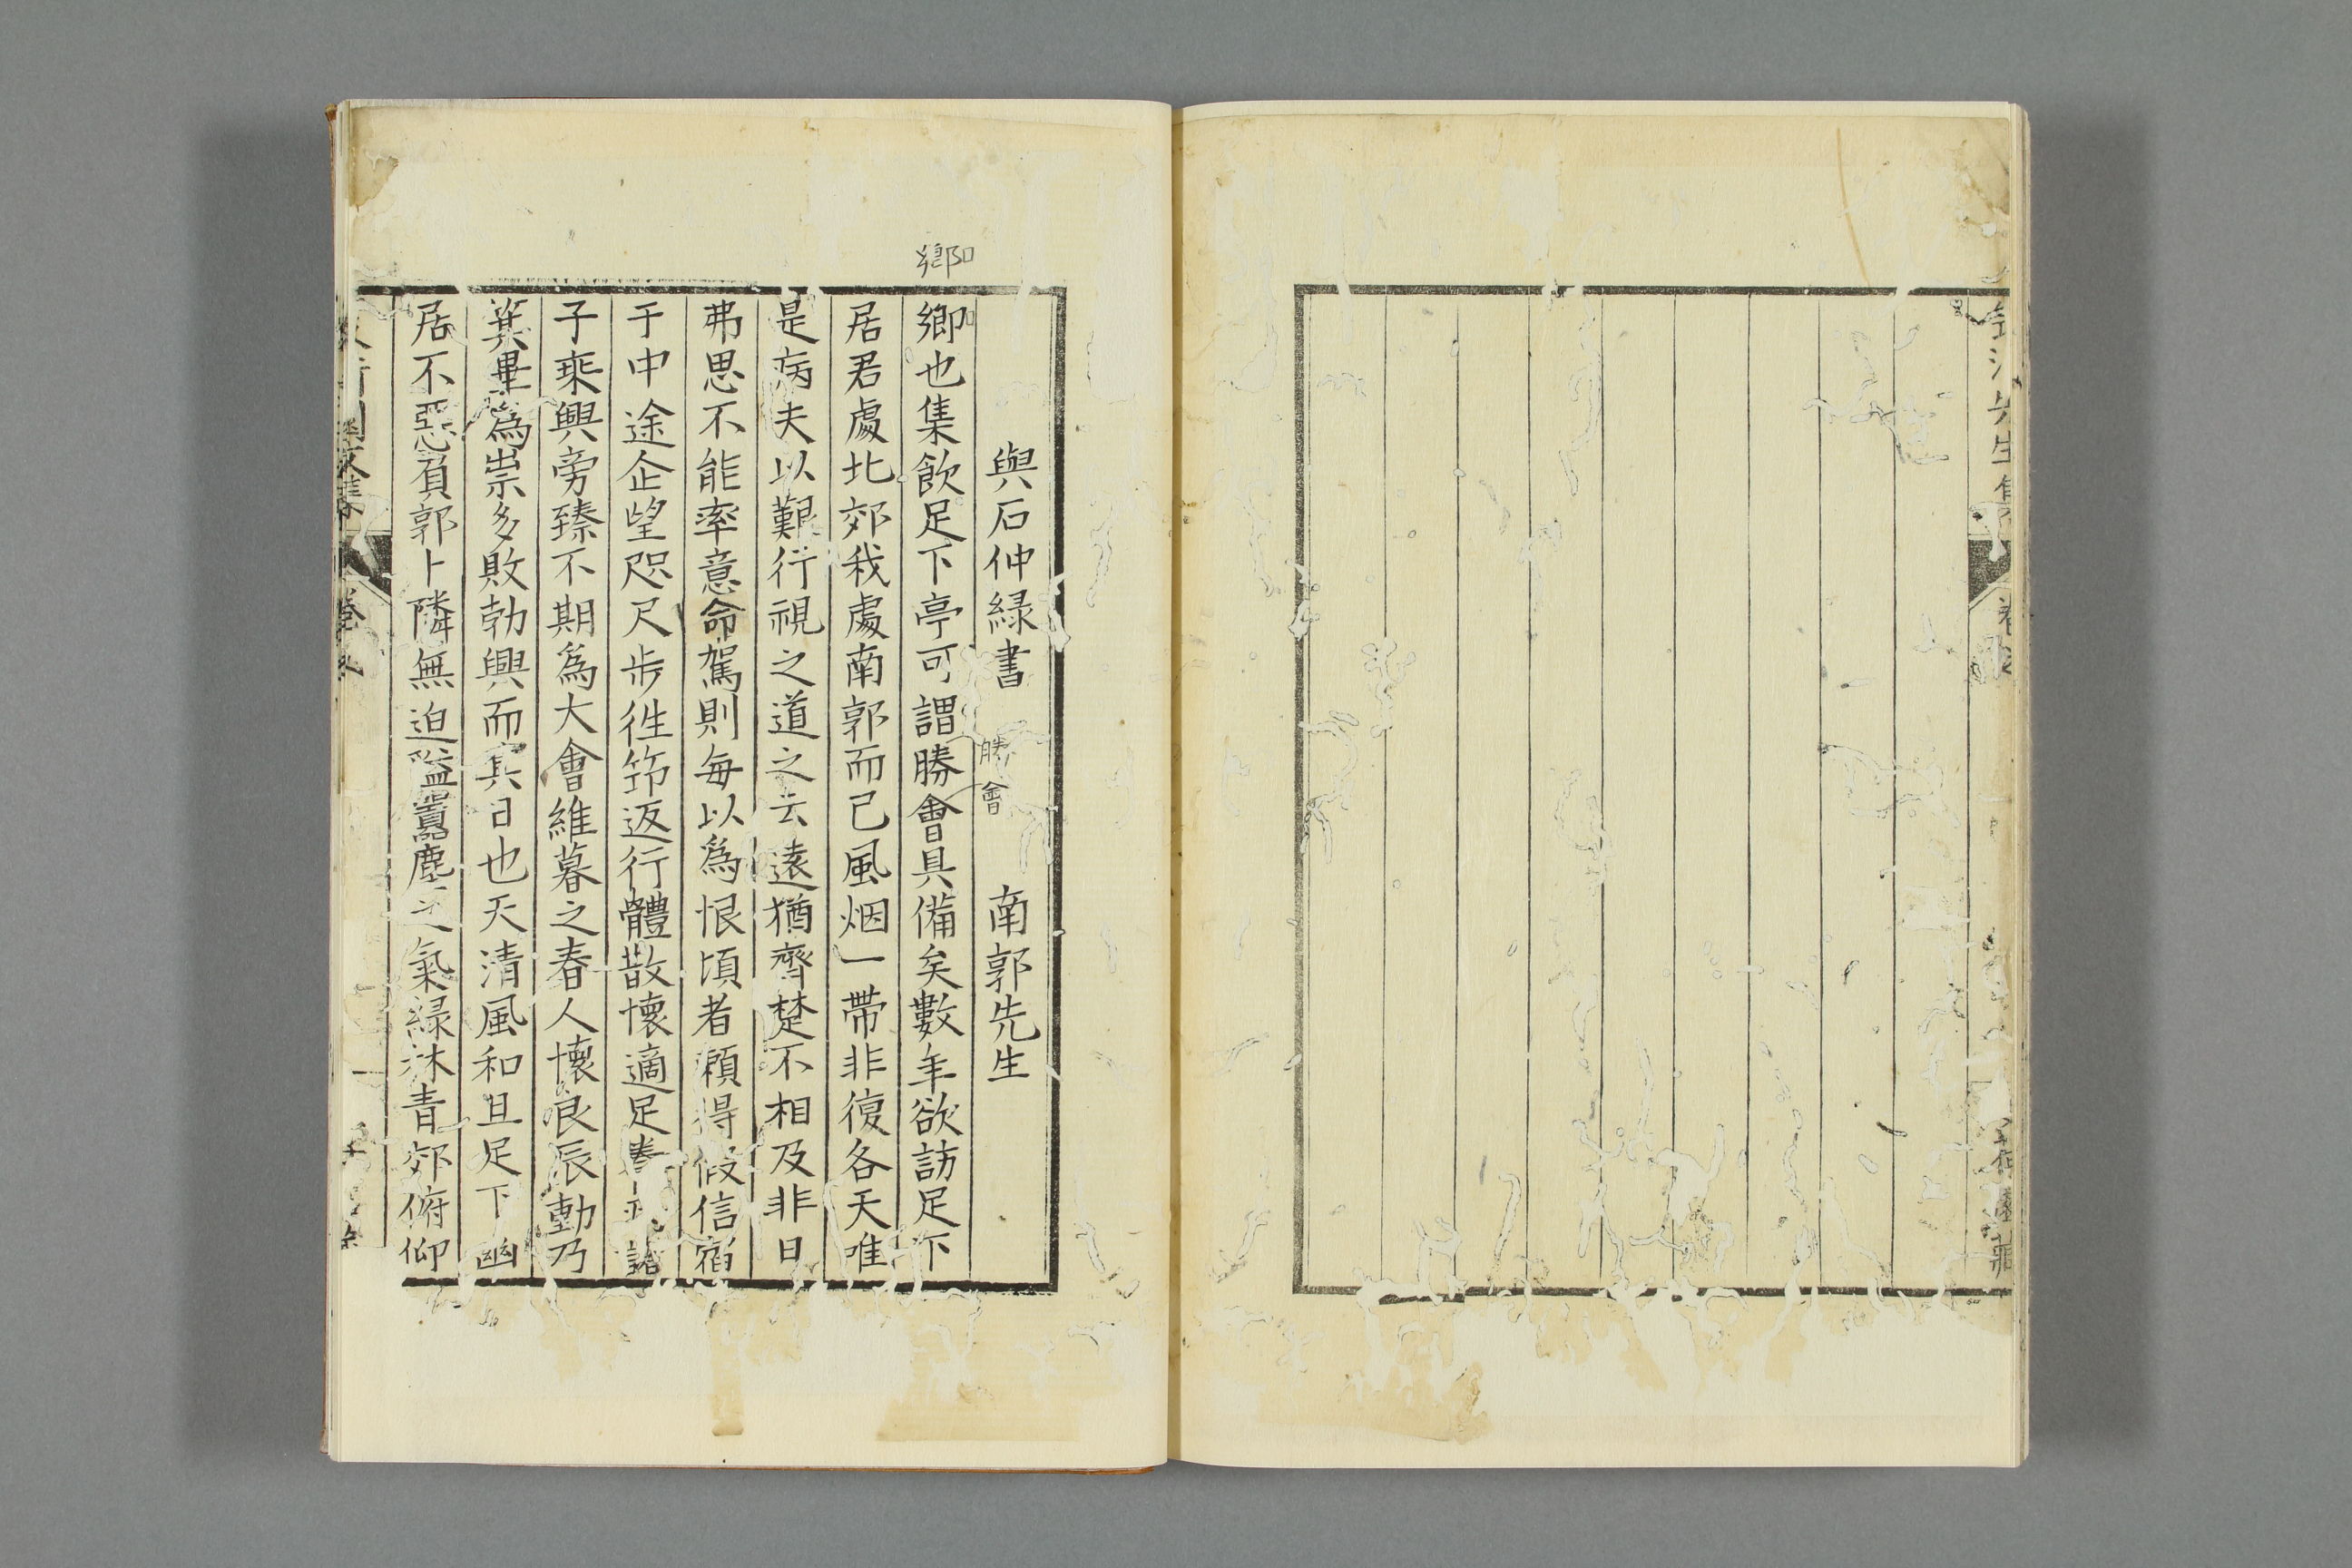 與石仲緑書 南郭先生
勝會
鄉
鄉也集飲足下亭可謂勝會具備矣數年欲訪足下
居君處北郊我處南郭而已風烟一帶非復各天唯
是病夫以艱行視之道之云遠猶齊楚不相及非日
弗思不能率意命駕則每以為恨頃者賴得假信宿
于中途企望咫尺步徃筇返行體散懷適足
子乘興旁臻不期為大會維暮之春人懷良辰動乃
箕畢為祟多敗勃興而其日也天清風和且足下幽
居不惡負郭卜隣無迫隘囂塵之氣緑林青郊俯仰